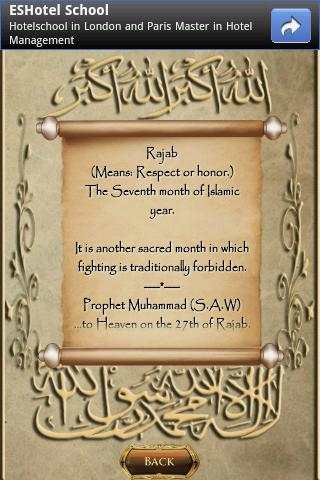 ESHotel School
Hotelschool in London and Paris Master in Hotel
Management
الله أكبر الله أكبر
Rajab
(Means: Respect or honor.)
The Seventh month of Islamic
year.
It is another sacred month in which
fighting is traditionally forbidden.
----*----
Prophet Muhammad (S.A.W)
...to Heaven on the 27th of Rajab.
لا إله إلا الله محمد رسول الله
BACK